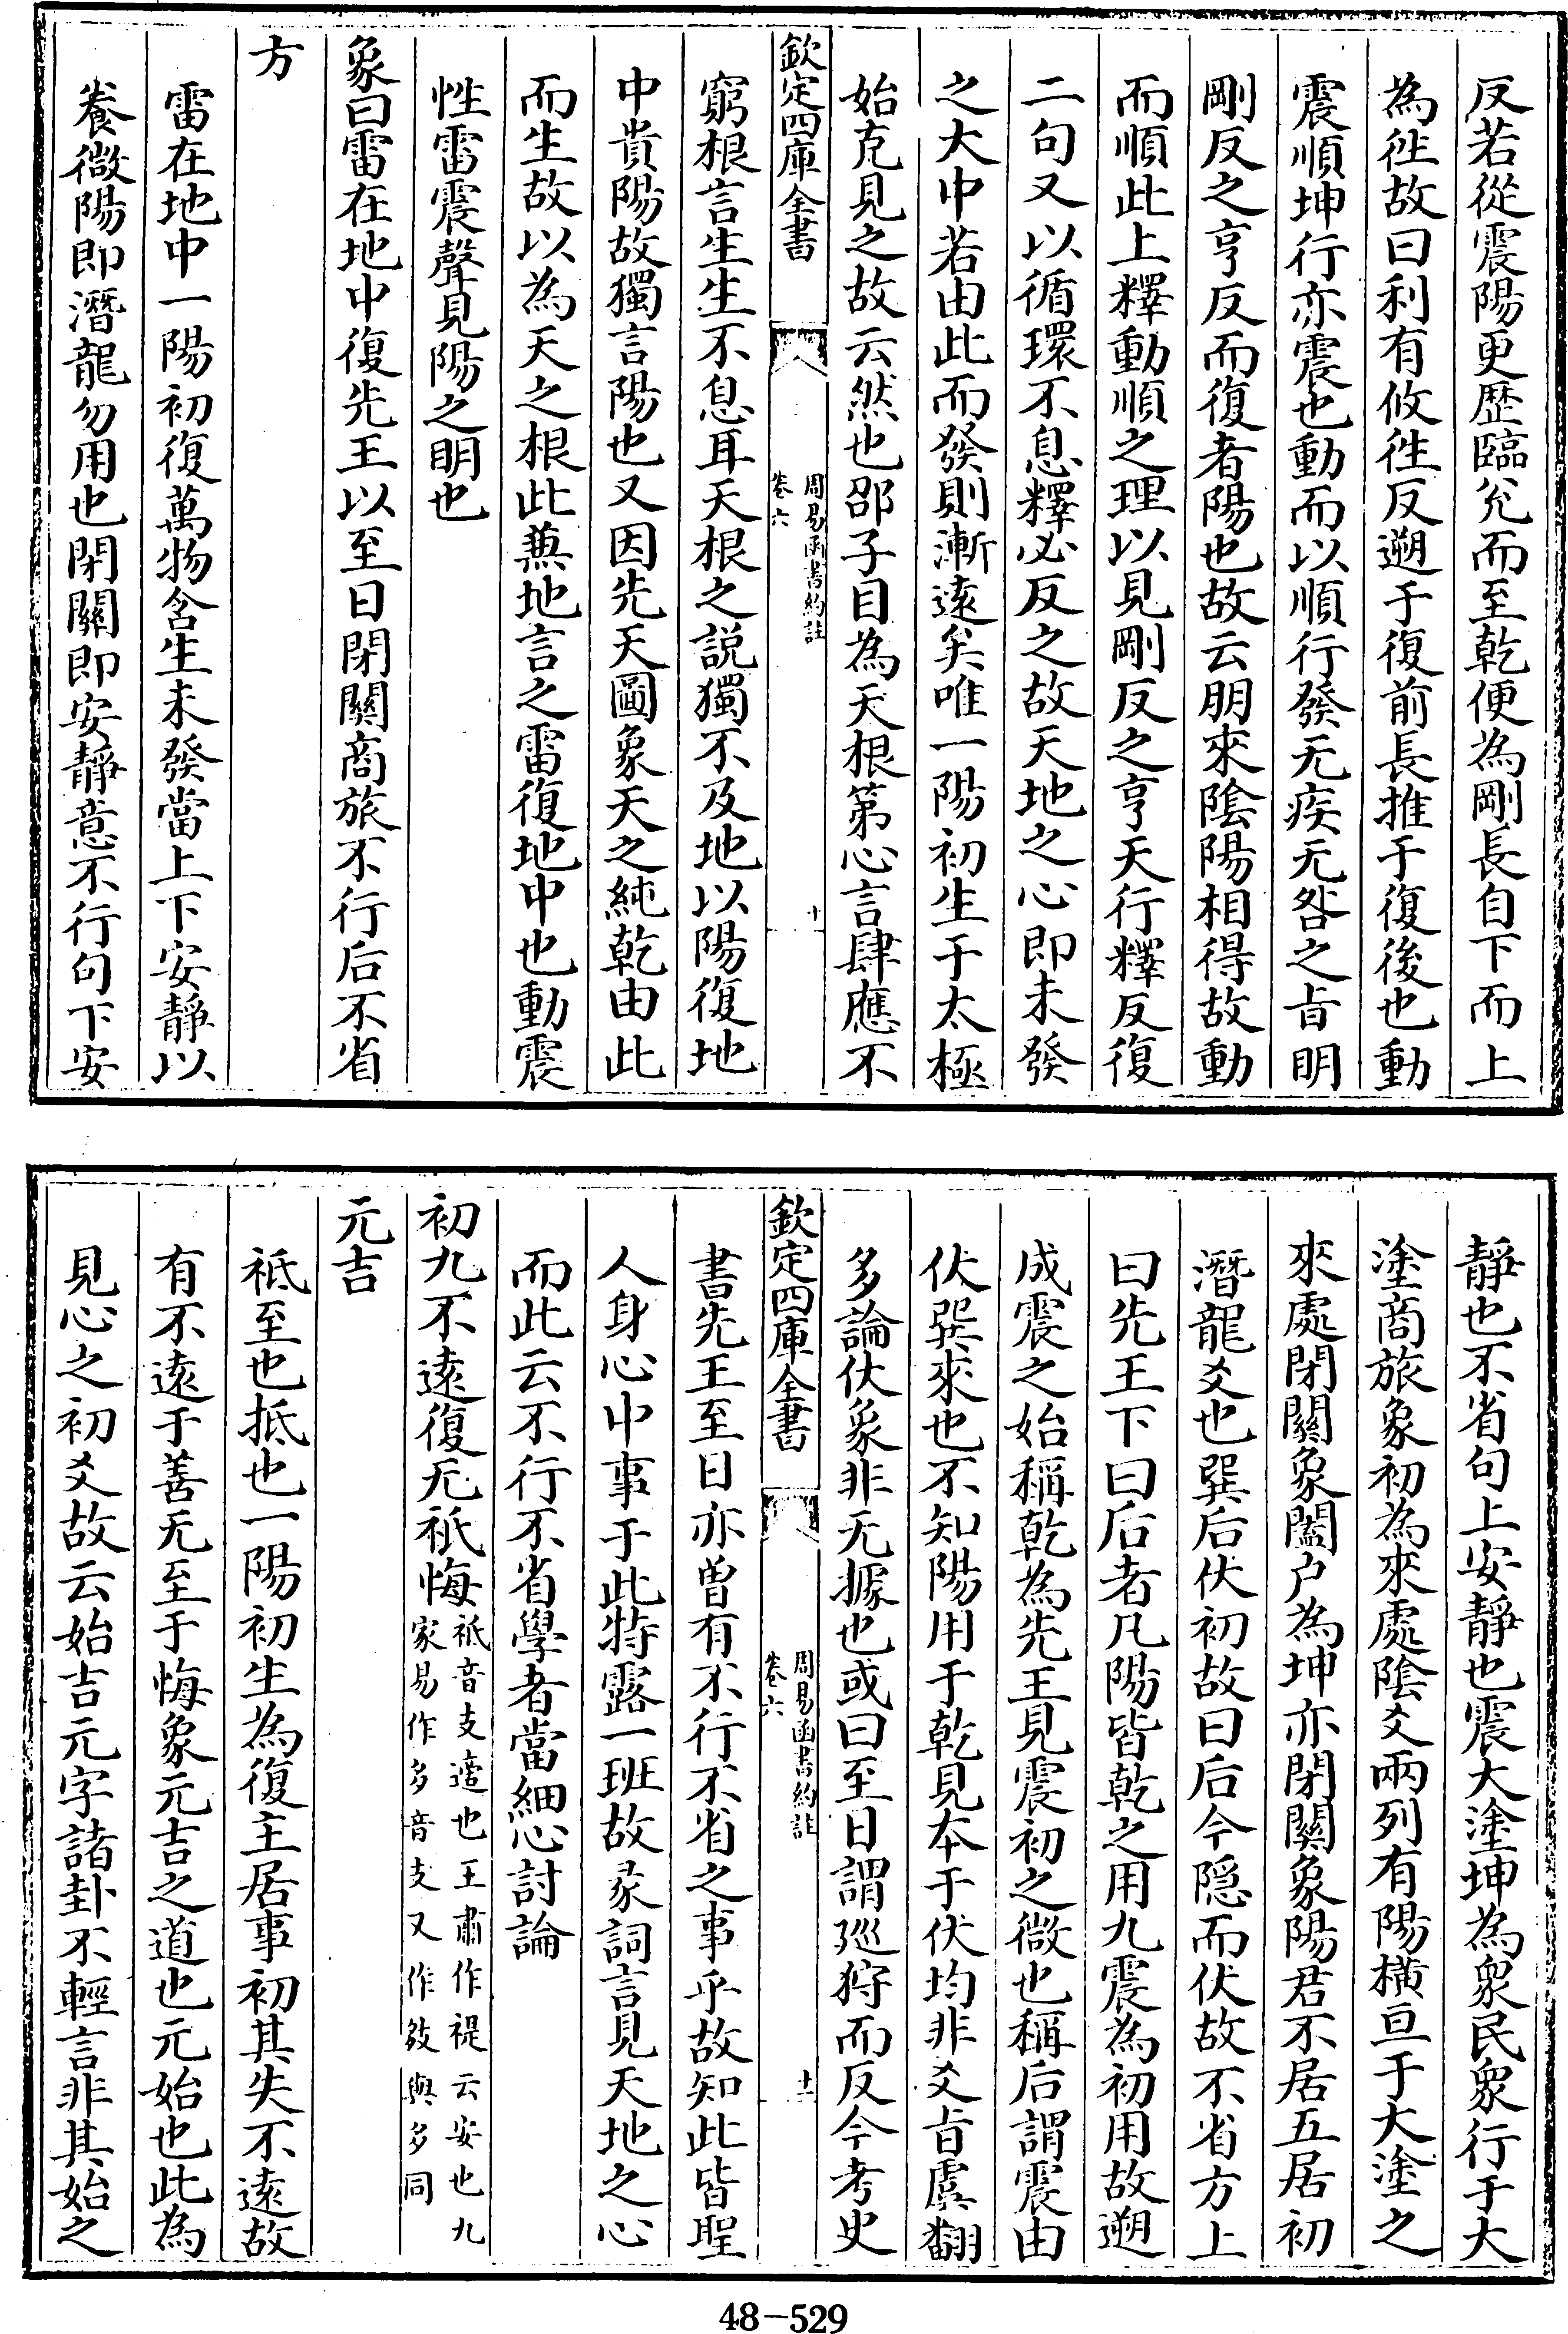 反若從震陽更歴臨兊而至乾便為剛長自下而上
為徃故曰利有攸徃反遡于復前長推于復後也動
震順坤行亦震也動而以順行發无疾无咎之㫖明
剛反之亨反而復者陽也故云朋來陰陽相得故動
而順此上釋動順之理以見剛反之亨天行釋反復
二句又以循環不息釋必反之故天地之心即未發
之大中若由此而發則漸逺矣唯一陽初生于太極
始克見之故云然也邵子目為天根第心言肆應不
欽定四庫全書
周易函書約註
卷六
十
窮根言生生不息耳天根之説獨不及地以陽復地
中貴陽故獨言陽也又因先天圖象天之純乾由此
而生故以為天之根此兼地言之雷復地中也動震
性雷震聲見陽之明也
象曰雷在地中復先王以至日閉關商旅不行后不省
方
雷在地中一陽初復萬物含生未發當上下安靜以
養微陽即潛龍勿用也閉關即安靜意不行句下安
靜也不省句上安靜也震大塗坤為衆民衆行于大
塗商旅象初為來處陰爻兩列有陽横亘于大塗之
來處閉關象闔户為坤亦閉關象陽君不居五居初
潛龍爻也巽后伏初故曰后今隠而伏故不省方上
曰先王下曰后者凡陽皆乾之用九震為初用故遡
成震之始稱乾為先王見震初之微也稱后謂震由
伏巽來也不知陽用于乾見本于伏均非爻㫖虞翻
多論伏象非无據也或曰至日謂廵狩而反今考史
欽定四庫全書
周易函書約註
卷六
十一
書先王至日亦曽有不行不省之事乎故知此皆聖
人身心中事于此特露一班故彖詞言見天地之心
而此云不行不省學者當細心討論
初九不逺復无祇悔祇音支適也王肅作禔云安也九
家易作多音支又作㩼與多同
元吉
祇至也抵也一陽初生為復主居事初其失不逺故
有不逺于善无至于悔象元吉之道也元始也此為
見心之初爻故云始吉元字諸卦不輕言非其始之
48-529